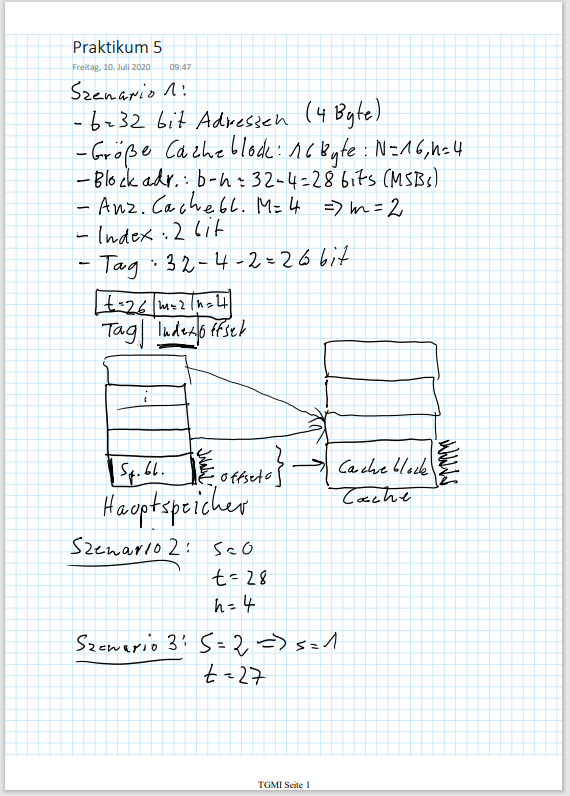 Praktikum 5
Freitag, 10. Juli 2020 09:47
Szenario 1:
- b=32 bit Adressen (4 Byte)
- Größe Cacheblock: 16 Byte: N=16, n=4
- Blockadr.: b-n = 32-4=28 bits (MSBs)
- Anz. Cachebl. M=4 => m=2
- Index: 2 bit
- Tag: 32-4-2=26 bit
t=26 | m=2 | n=4
Tag | Index | Offset
i
Sp.bl. offset0 } → Cacheblock
Hauptspeicher Cache
Szenario 2: s=0
t=28
n=4
Szenario 3: S=2 => s=1
t=27
TGMI Seite 1